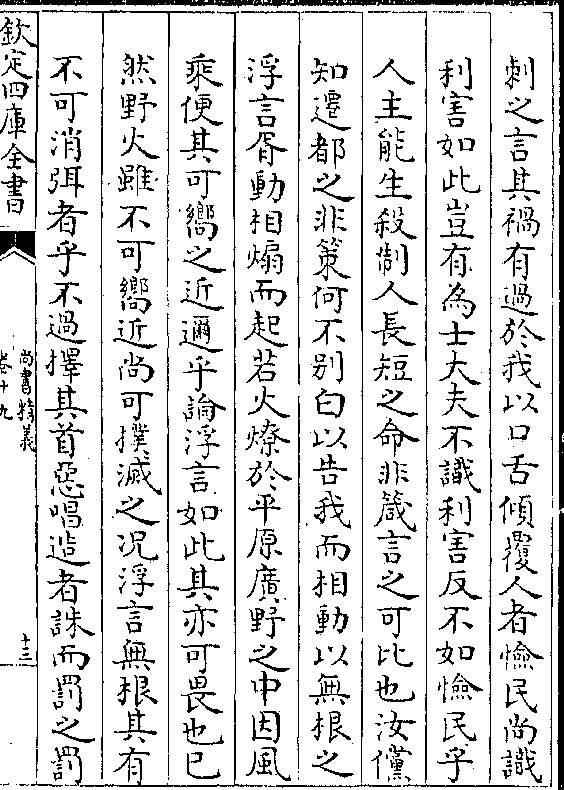 刺之言其禍有過於我以口舌傾覆人者憸民尚識
利害如此豈有為士大夫不識利害反不如憸民乎
人主能生殺制人長短之命非箴言之可比也汝儻
知遷都之非策何不别白以告我而相動以無根之
浮言胥動相煽而起若火燎於平原廣野之中因風
乘便其可嚮之近邇乎論浮言如此其亦可畏也已
然野火雖不可嚮近尚可撲滅之况浮言無根其有
不可消弭者乎不過擇其首惡唱造者誅而罰之罰
欽定四庫全書
尚書精義
卷十九
十三